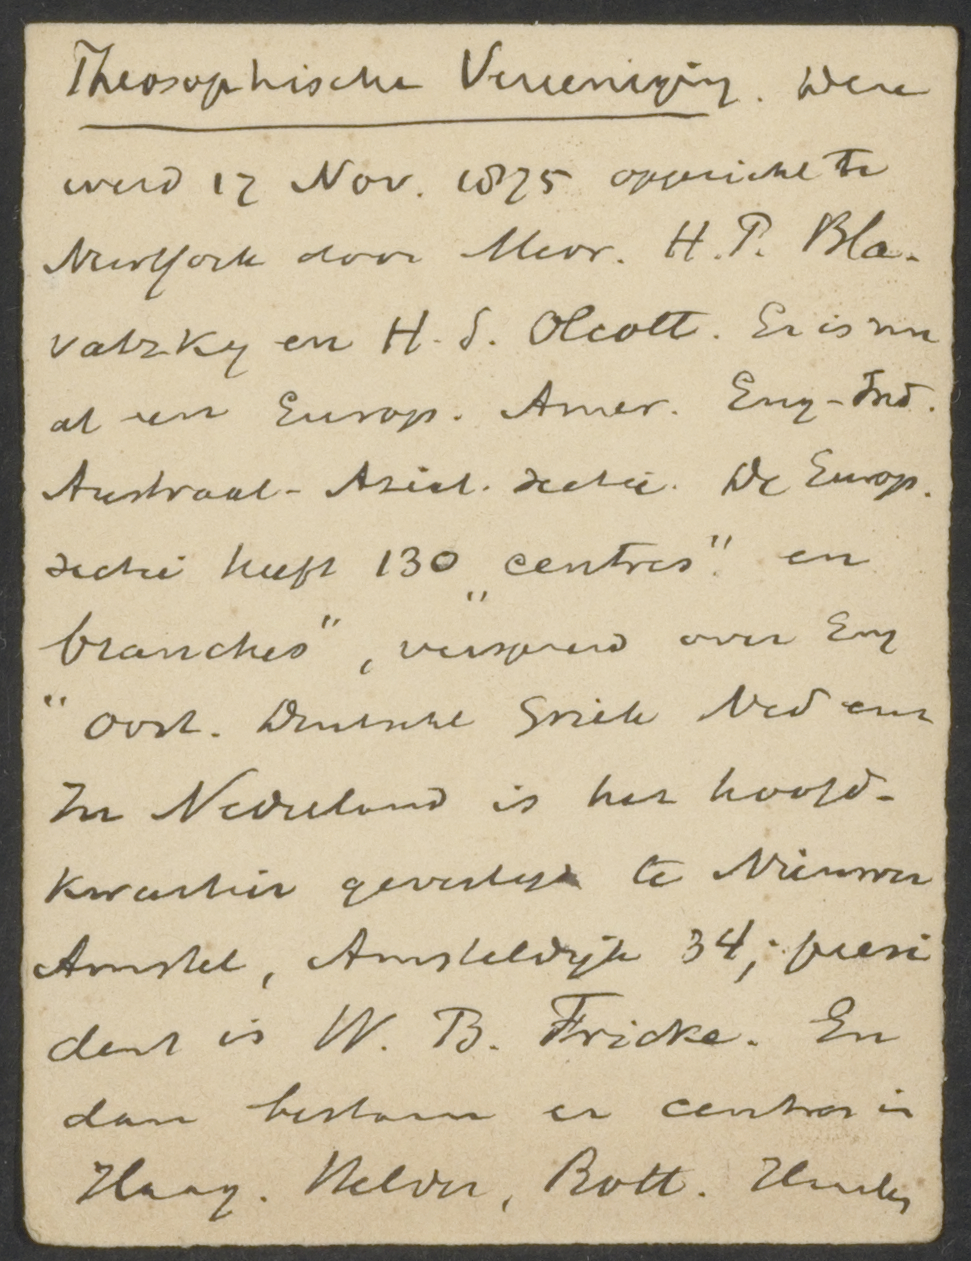 Theosophische Vereeniging. Deze
werd 17 Nov. 1875 opgericht te
NewYork door Mevr. H. P. Bla-
vatzky en H. S. Olcott. Er is nu
al een Europ. Amer. Eng-Ind.
Austraal-Aziat. sectie. De Europ.
sectie heeft 130 „centres" en
„branches", verspreid over Eng
" Oost. Duitschl Griek Ned enz
In Nederland is het hoofd-
kwartier gevestigd te Nieuwer
Amstel, Amsteldijk 34; presi
dent is W. B. Fricke. En
dan bestaan er centra in
Haag. Helder, Rott.